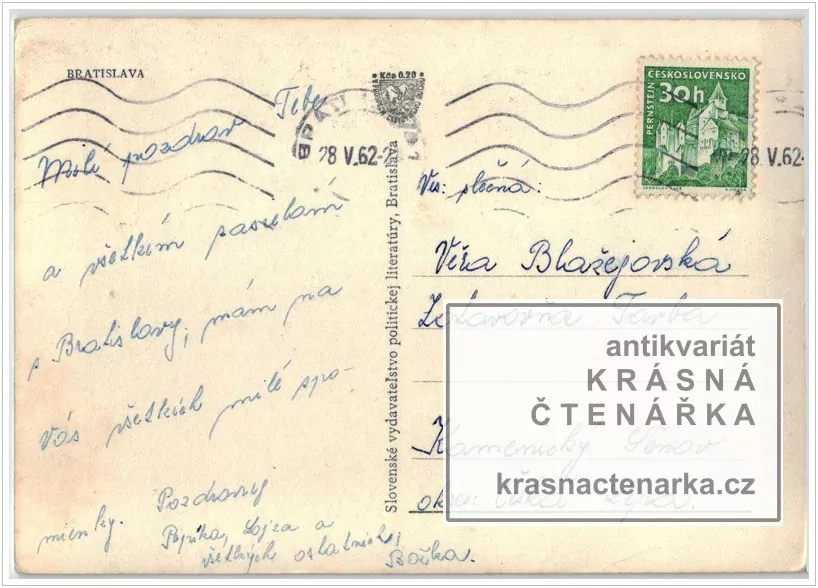 BRATISLAVA
Milé pozdrav Tebe
a všetkým posielam
s Bratislavy, mám na
Vás všetkých milé spo-
mienky. Pozdravy
Pepíka, Lojza a
všetkých ostatních,
Božka.
Slovenské vydavateľstvo politickej literatúry, Bratislava
• Kčs 0,20 •
28 V.62
ČESKOSLOVENSKO
30h
PERNŠTEJN
28 V.62
Vs: slečná:
Věra Blažejovská
Farba
Kamenický Šenov
okres: Česká Lípa.
antikvariát
KRÁSNÁ
ČTENÁŘKA
krasnactenarka.cz